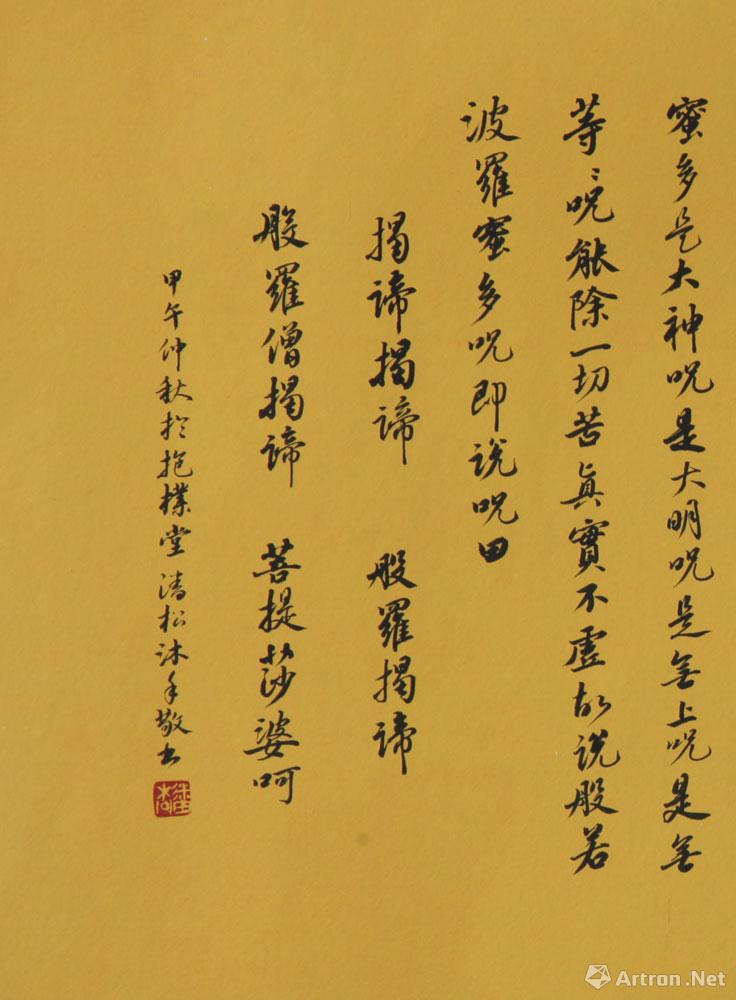 蜜多是大神呪是大明呪是無上呪是無
等〻呪能除一切苦真實不虛故说般若
波羅蜜多呪即说呪曰
揭諦揭諦 般羅揭諦
般羅僧揭諦 菩提莎婆呵
甲午仲秋於抱樸堂清松沐手敬书
Artron.Net